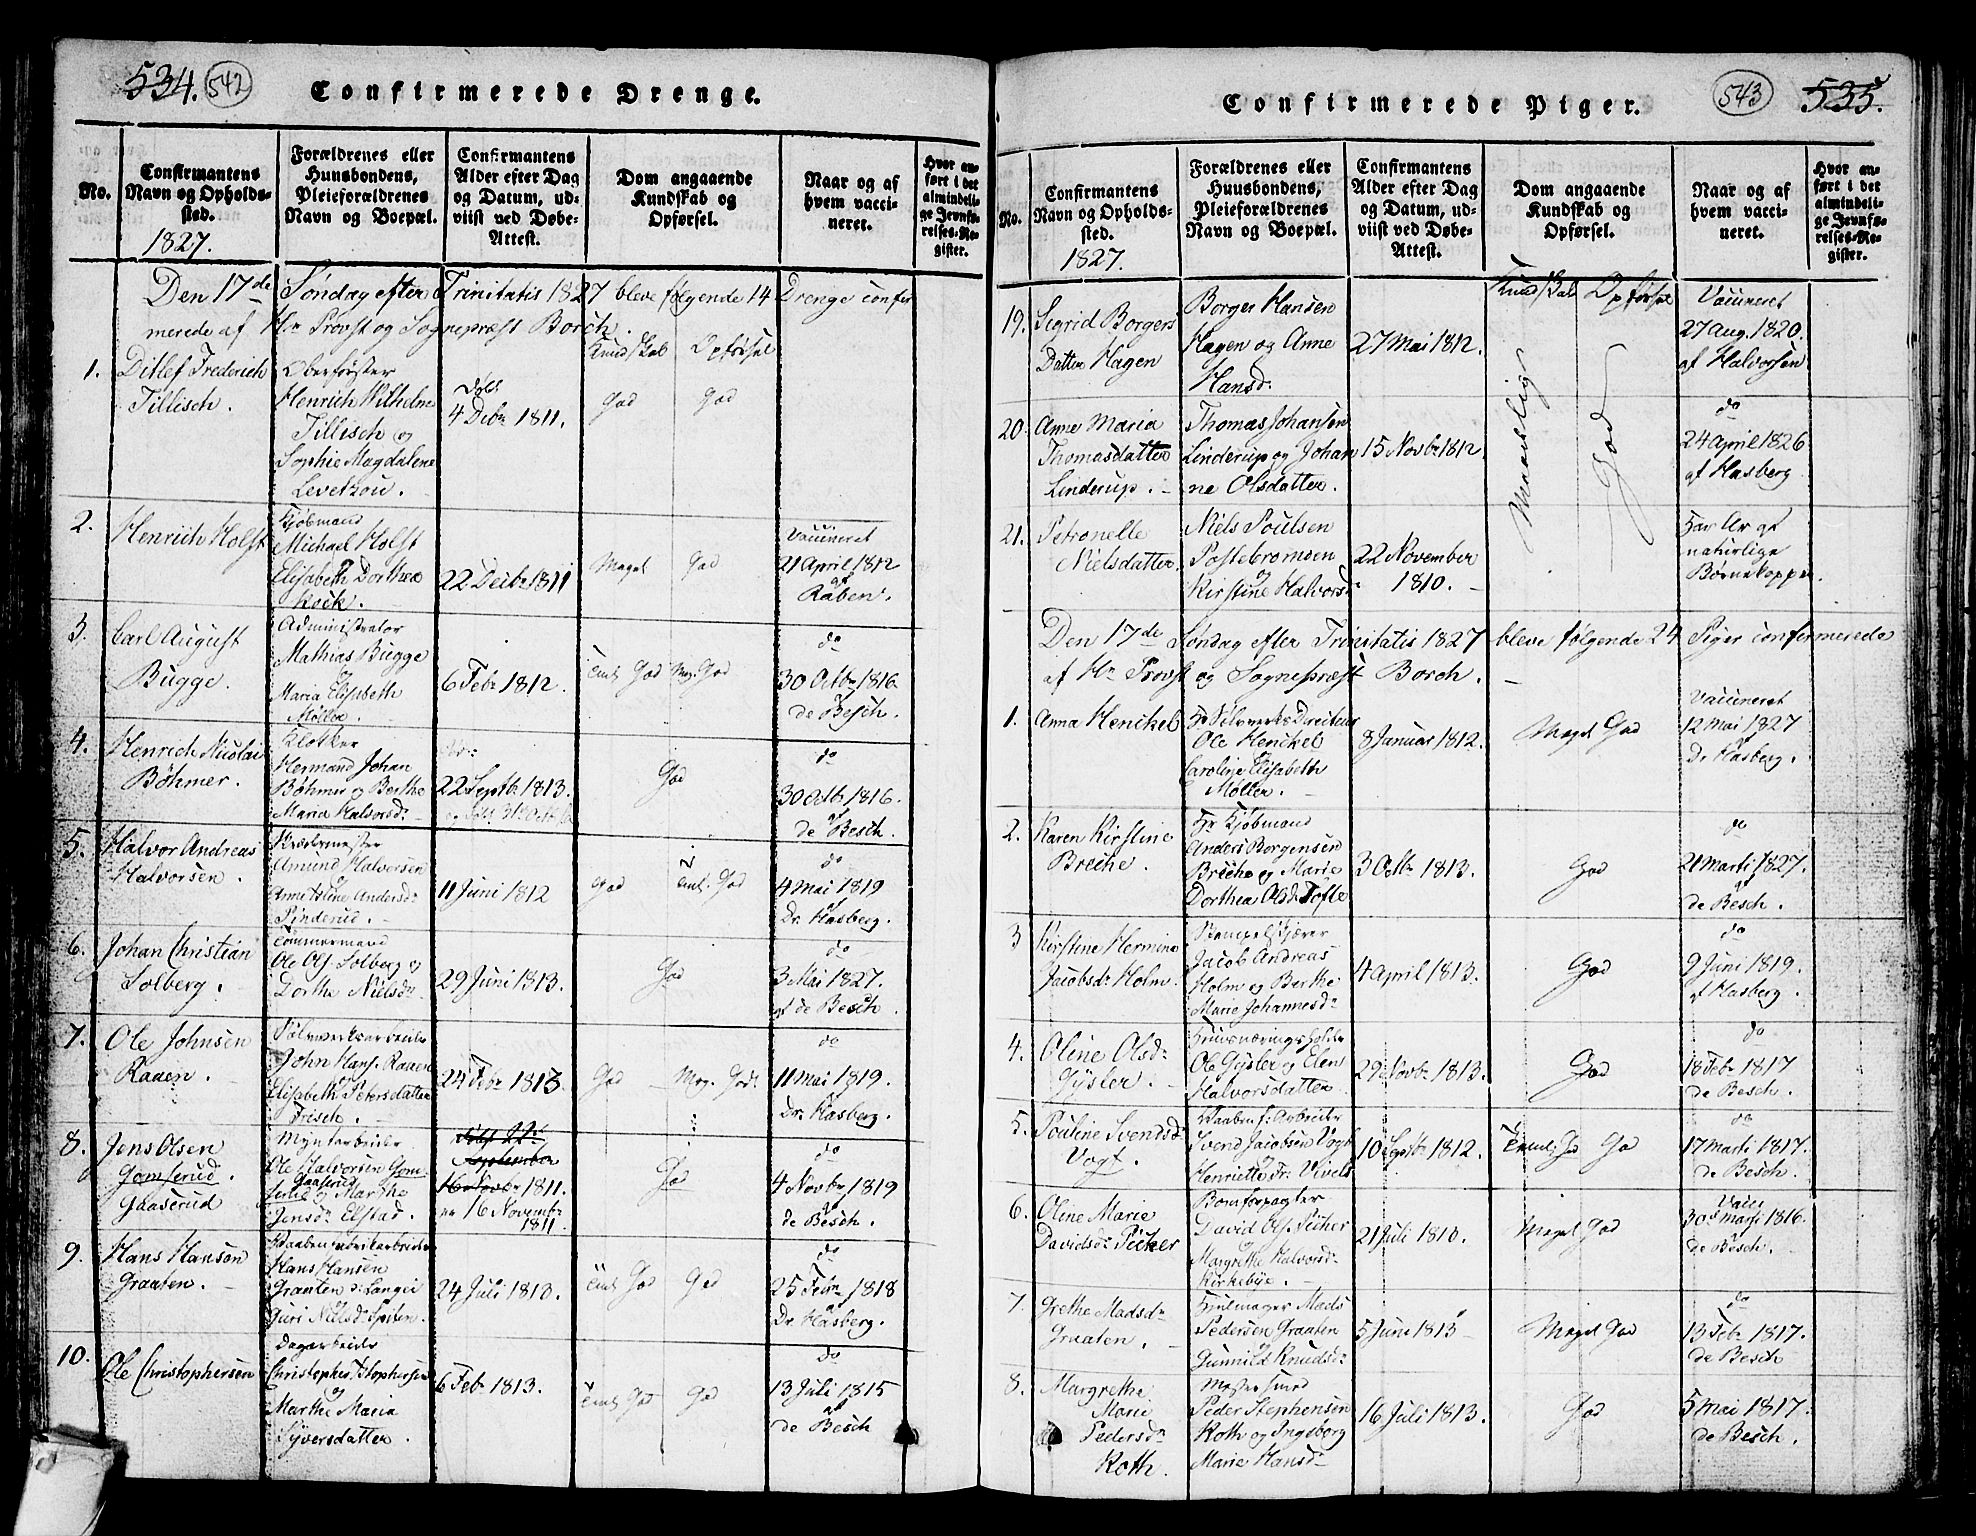 534. 542
Confirmerede Drenge.
No.
Confirmantens
Navn og Opholds-
sted.
1827.
Forældrenes eller
Huusbondens,
Pleieforældrenes
Navn og Boepæl.
Confirmantens
Alder efter Dag
og Datum, ud-
viist ved Døbe-
Attest.
Dom angaaende
Kundskab og
Opførsel.
Naar og af
hvem vacci-
neret.
Hvor an-
ført i det
almindeli-
ge Jevnfø-
relses-Re-
gister.
Den 17de Søndag efter Trinitatis 1827 bleve følgende 14 Drenge confir
merede af Hr Provst og Sognepræst Borch.
Kundskab Opførsel
1.
Ditlef Frederich
Tillisch.
Oberførster
Henrich Wilhelm
Tillisch og
Sophie Magdalene
Levetzou.
Døbt
4 Decbr 1811.
God God
2.
Henrich Holst
Kjöbmand
Michael Holst
Elisabeth Dorthea
Kock.
22 Decbr 1811
Meget God
Vaccineret
21 April 1812
af
Raben.
3.
Carl August
Bugge.
Administrator
Mathias Bugge
og
Maria Elisbeth
Møller.
6 Febr 1812.
Teml God Meg. God
do
30 Octbr 1816
de Besch.
4.
Henrich Nicolai
Böhmer.
Klokker
Hermand Johan
Böhmer og Berthe
Maria Halvorsdr
22 Septbr 1813.
God
do
30 Octb 1816.
af
de Besch.
5.
Halvor Andreas
Halvorsen.
Amund Halvorsen
og
Anne Stine Andersdr
Pinderud.
11 Juni 1812
God Teml. God
do
4 Mai 1819
af
Dr. Hasberg.
6.
Johan Christian
Solberg.
Tømmermand
Ole Ols. Solberg og
Dorthe Nielsdr
29 Juni 1813.
God
do
3 Mai 1827.
af de Besch.
7.
Ole Johnsen
Raaen.
Sølvverksarbeider
John Hans. Raaen
og
Elisabeth Petersdatter
Frisch.
24 Febr 1813.
God Meg. Godt
do
11 Mai 1819.
Dr. Hasberg.
8.
Jens Olsen
Gomserud.
Gaaserud
Myntarbeider
Ole Halvorsen Gom-
Gaaserud
serud og Marthe
Jensdr Elstad.
Født 22de
September
16 Novbr 1811.
16 Novembr
1811.
God
do
4 Novbr 1819
af
de Besch.
9.
Hans Hansen
Graaten.
Vaabenfabrikarbeider
Hans Hansen
Graaten d: Langei
Guri Nielsdr Spiten.
24 Juli 1813.
Teml God God
do
25 Febr 1818
af
Dr. Hasberg.
10.
Ole Christophersen
Dagarbeider
Christopher Christophersen
og
Marthe Maria
Syversdatter.
6 Febr 1813.
Teml God God
do
13 Juli 1815
af
de Besch
Confirmerede Piger.
543 535.
No.
Confirmantens
Navn og Opholds-
sted.
1827.
Forældrenes eller
Huusbondens,
Pleieforældrenes
Navn og Boepæl.
Confirmantens
Alder efter Dag
og Datum, ud-
viist ved Døbe-
Attest.
Dom angaaende
Kundskab og
Opførsel.
Naar og af
hvem vacci-
neret.
Hvor an-
ført i det
almindeli-
ge Jevnfø-
relses-Re-
gister.
Kundskab Opførsel
19.
Sigrid Borgers
Datter Hagen
Borger Hansen
Hagen og Anne
Hansd.
27 Mai 1812.
Maadelig
God
Vaccineret
27 Aug. 1820.
af Halvorsen
20.
Anne Maria
Thomasdatter
Linderup.
Thomas Johansen
Linderup og Johan
ne Olsdatter.
15 Novbr 1812
do
24 April 1826
af Hasberg
21.
Petronelle
Nielsdatter.
Niels Poulsen
Postebromoen
og
Kirstine Halvorsd
22 November
1810.
Har Ar af
naturlige
Børnekopper.
Den 17de Søndag efter Trinitatis 1827 bleve følgende 24 Piger confirmerede
af Hr Provst og Sognepræst Borch.
1.
Anna Henckel
Hr Sölvverks Directeur
Ole Henckel
og
Caroline Elisabeth
Møller.
8 Januar 1812.
Meget God
Vaccineret
12 Mai 1827
af
Dr Hasberg.
2.
Karen Kirstine
Breche.
Hr Kjöbmand
Anders Borgensen
Breche og Marie
Dorthea Olsdr Tofte
3 Octbr 1813.
God
do
21 Marti 1827.
af
de Besch.
3
Kirstine Hermine
Jacobsdr Holm.
Stempelskjærer
Jacob Andreas
Holm og Berthe
Marie Johannesdr
4 April 1813.
God
do
9 Juni 1819.
af Hasberg.
4.
Oline Olsdr
Gysler.
Ole Gysler og Elen
Halvorsdatter
29 Novbr 1813.
God
do
18 Febr 1817
de Besch.
5.
Pouline Svendsdr
Vogt.
Vaabenf: Arbeider
Svend Jacobsen Vogt
og
Henriette Fr: Vivels
10 Septbr 1812.
Teml: God God
do
17 Marti 1817.
de Besch.
6.
Oline Marie
Davidsdr Picher
Bomforpagter
David Ols. Picher
og
Margrethe Halvorsdr
Kirkebye.
21 Juli 1813.
Meget God
Vacc
30 Marti 1816.
de Besch.
7.
Grethe Madsdr
Graaten.
Hjulmager Mads
Pedersen Graaten
og
Gunnild Knudsdr
5 Juni 1813
Meget God
do
13 Febr 1817.
de Besch
8.
Margrethe
Marie
Pedersdr
Roth.
Mestersmed
Peder Stephensen
Roth og Ingeborg
Marie Hansdr
16 Juli 1813.
God
5 Mai 1817.
de Besch.